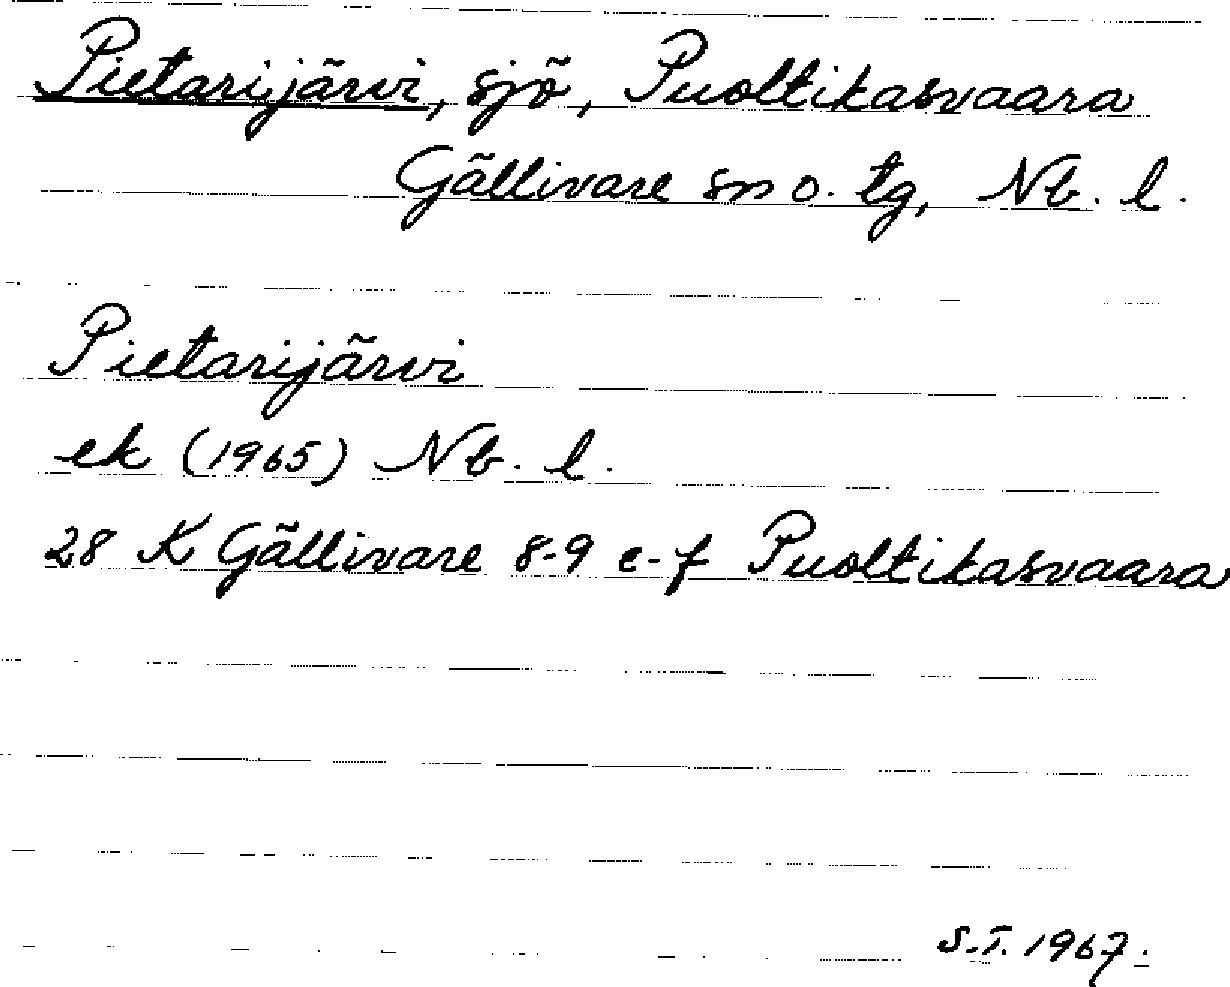 Pietarijärvi, sjö, Puoltikasvaara
Gällivare sn o. tg, Nb. l.
Pietarijärvi
ek (1965) Nb. l.
28 K Gällivare 8-9 e-f Puoltikasvaara
S.T. 1967.